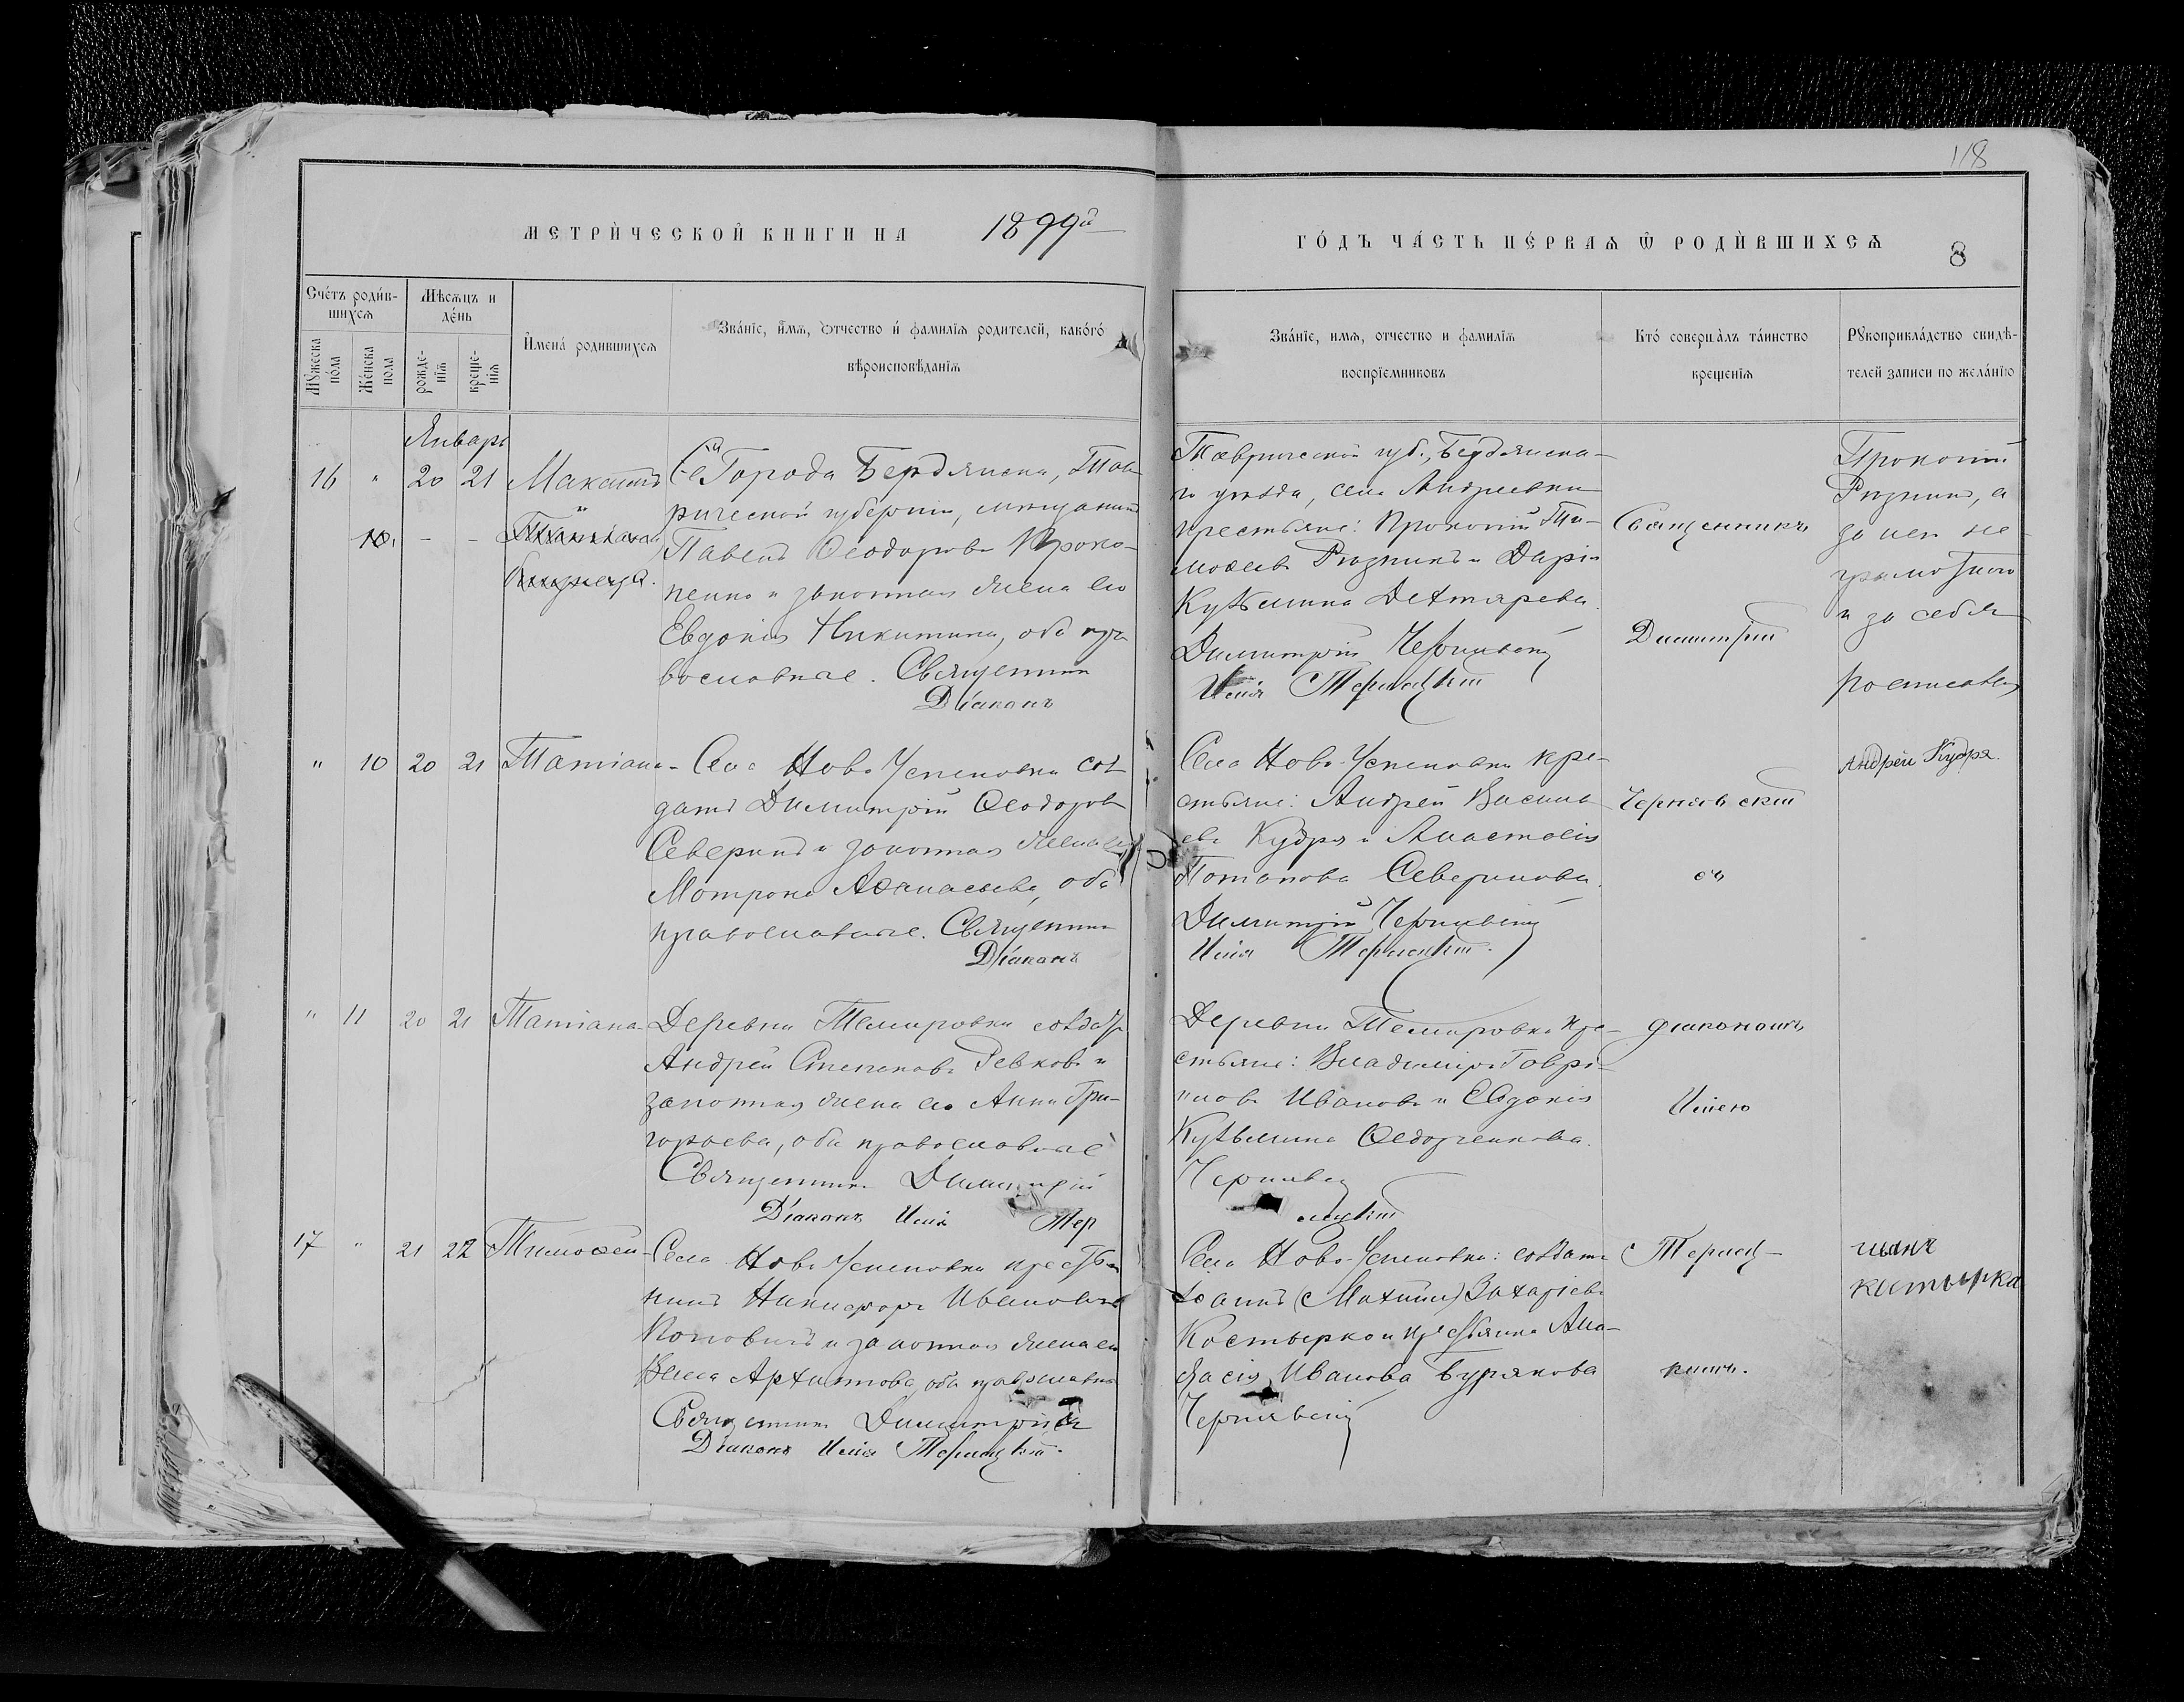 118
МЕТРИ́ЧЕСКОЙ КНИГИ НА 1899й
ГО́ДЪ ЧА́СТЬ ПЕ́РВАѦ Ѡ҆ РОДИ́ВШИХСѦ
8
Сче́тъ роди́в-
шихсѧ
Мѣсѧцъ и
де́нь
Мꙋжеска
по́ла
Же́нска
пола
рожде-
нїѧ
креще-
нїѧ
И҆мена́ родившихсѧ
Зва́нїе, и҆мѧ, ѻтчество и҆ фамилїѧ родителей, како́гѡ
вѣроисповѣданїѧ
Зва́нїе, имѧ, отчество и фамилїѧ
воспрїемниковъ
Кто́ соверша́лъ та́инство
крещенїѧ
Рꙋкоприкла́дство свидѣ-
телей записи по жела́нїю
Январь
16 " 20 21 Максимъ
Города Бердянска, Тав-
рической губерніи, мещанинъ
10. - - Татіана
Павелъ Ѳеодоровъ Проко-
пенко и законная жена его
Евдокія Никитина, оба пра
вославные. Священникъ
Діаконъ
Таврической губ., Бердянска-
го уезда, села Андреевки
крестьяне: Прокопій Ти-
моѳеевъ Ризникъ и Дарія
Кузьмина Дехтярева.
Димитрій Чернявскій
Илія Терлецкій
Священникъ
Димитрій
Прокопій
Ризникъ, а
за нея не-
грамотною
и за себя
росписался
" 10 20 21 Татіана
Села Ново Успеновки сол
датъ Димитрій Ѳеодоровъ
Северинъ и законная жена его
Мотрона Аѳанасьева, оба
православные. Священникъ
Діаконъ
Села Ново-Успеновки кре-
стьяне: Андрей Василь
евъ Кудря и Анастасія
Потапова Северинова.
Димитрій Чернявскій
Илія Терлецкій.
Чернявскій
съ
Андрей Кудря.
" 11 20 21 Татіана
Деревни Темировки солдатъ
Андрей Степановъ Ревковъ и
законная жена его Анна Гри-
горьева, оба православные
Священникъ Димитрій
Діаконъ Илія Тер
Деревни Темировки кре-
стьяне: Владиміръ Гаврі-
иловъ Ивановъ и Евдокія
Кузьмина Ѳедорченкова.
Чернявскій
лецкій
діакономъ
Иліею
17 " 21 22 Тимоѳей
Села Ново Успеновки крестья
нинъ Никифоръ Ивановъ
Поповичъ и законная жена его
Васса Архипова, оба православны
Священникъ Димитрій
Діаконъ Илія Терлецкій.
Села Ново-Успеновки: солдатъ
Іоаннъ (Махтей) Захаріевъ
Костырко и крестьянка Ана-
стасія Иванова Бурякова
Чернявскій
Терлец-
кимъ.
костырка